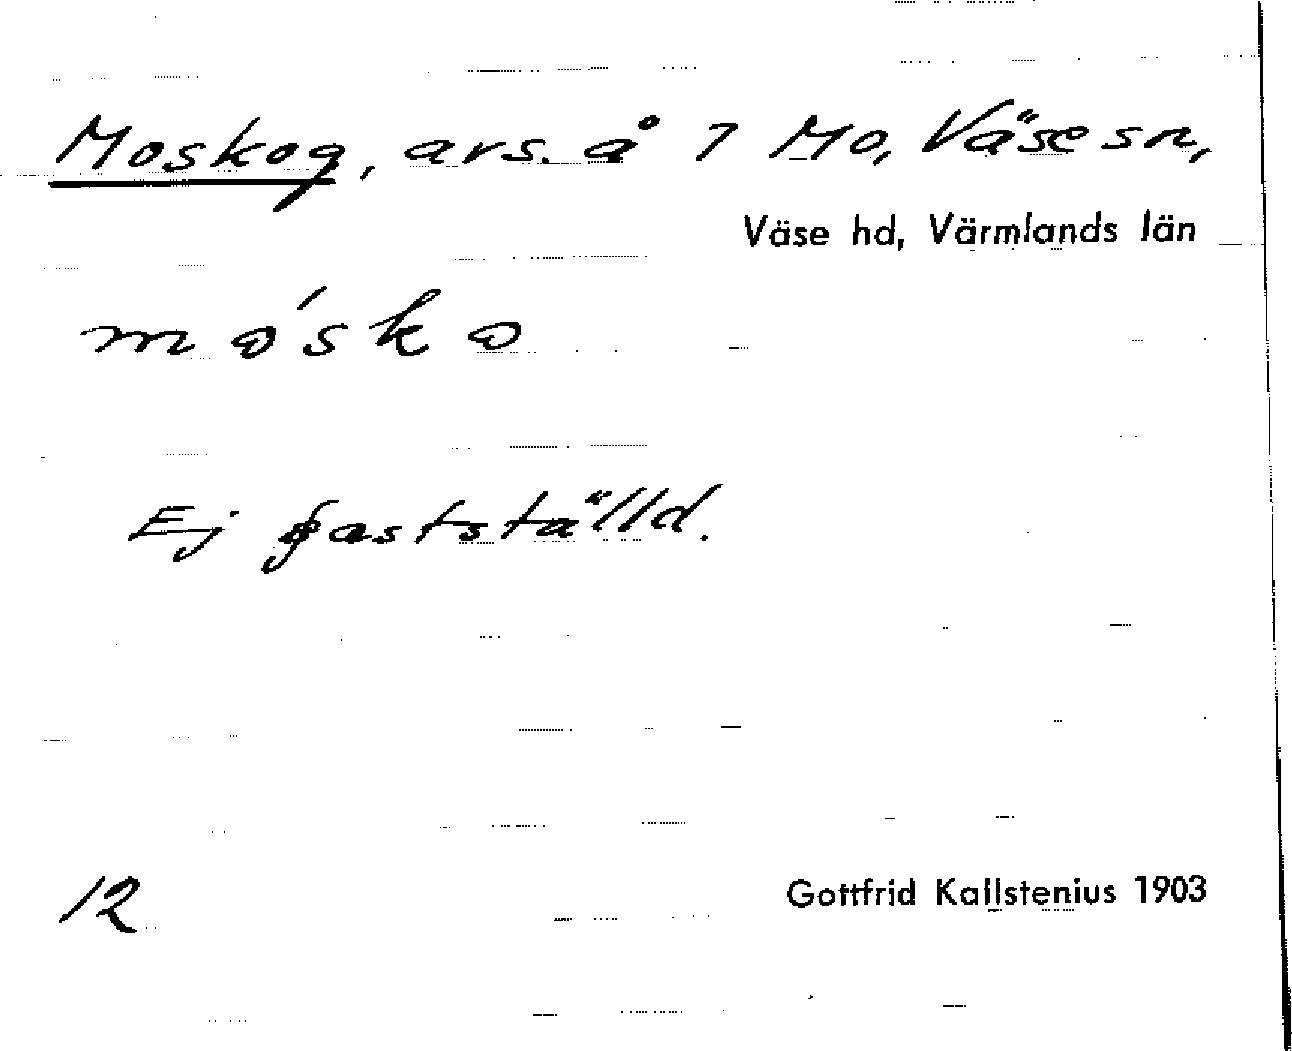 Moskog, avs. å 7 Mo, Väse sn,
Väse hd, Värmlands län
mo'sko
Ej fastställd.
12
Gottfrid Kallstenius 1903